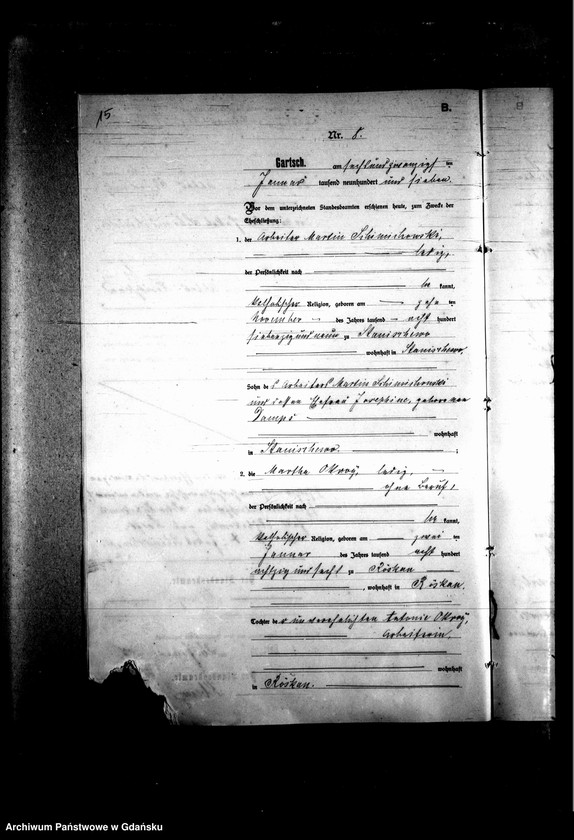 15
B.
Nr. 8.
Gartsch. am sechsundzwanzigsten
Januar tausend neunhundert und sieben.
Vor dem unterzeichneten Standesbeamten erschienen heute, zum Zwecke der
Eheschließung:
1. der Arbeiter Martin Schimichowski,
ledig,
der Persönlichkeit nach
be kannt,
katholischer Religion, geboren am zehn ten
November des Jahres tausend acht hundert
siebenzig und neun zu Stanischewo
wohnhaft in Stanischewo.
Sohn des Arbeiters Martin Schimichowski
und dessen Ehefrau Josephine, geborenen
Damps
wohnhaft
in Stanischewo. ;
2. die Martha Okroy, ledig,
ohne Beruf,
der Persönlichkeit nach
be kannt,
katholischer Religion, geboren am zwei ten
Januar des Jahres tausend acht hundert
achtzig und sechs zu Röskau
, wohnhaft in Röskau.
Tochter der unverehelichten Antonie Okroy,
Arbeiterin,
wohnhaft
in Röskau.
B
Archiwum Państwowe w Gdańsku